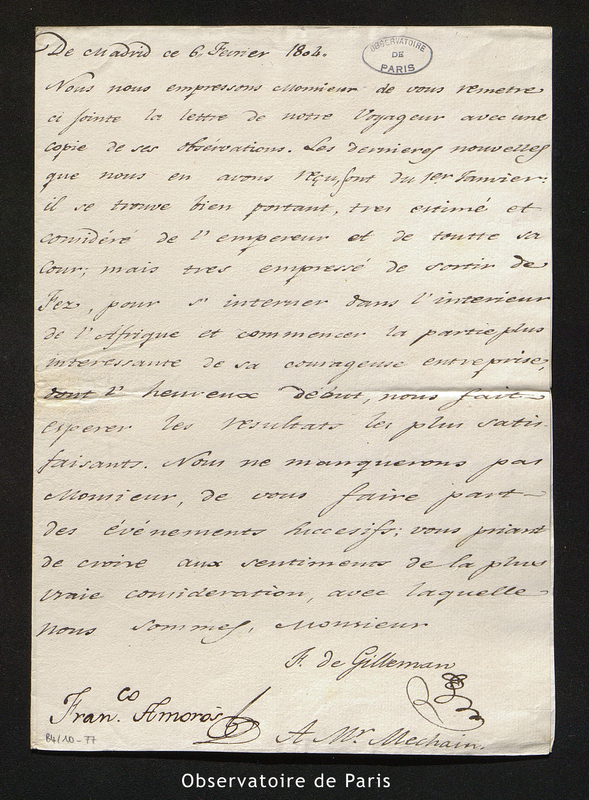 De Madrid ce 6. Fevrier 1804.
OBSERVATOIRE
DE
PARIS
Nous nous empressons Monsieur de vous remetre
ci jointe la lettre de notre Voyageur avec une
copie de ses obsérvations. Les dernieres nouvelles
que nous en avons reçu, sont du 1er. Janvier:
il se trouve bien portant, tres estimé et
considéré de l'empereur et de toutte sa
Cour; mais tres empressé de sortir de
Fez, pour s'interner dans l'interieur
de l'Afrique et commencer la partie plus
interessante de sa courageuse entreprise,
dont l'heureux début, nous fait
esperer les resultats les plus satis
faisants. Nous ne manquerons pas
Monsieur, de vous faire part
des événements succesifs; vous priant
de croire aux sentiments de la plus
vraie consideration, avec laquelle
nous sommes, Monsieur
F. de Gilleman
Fran.co Amorós
A Mr. Mechain.
B4/10-77
Observatoire de Paris